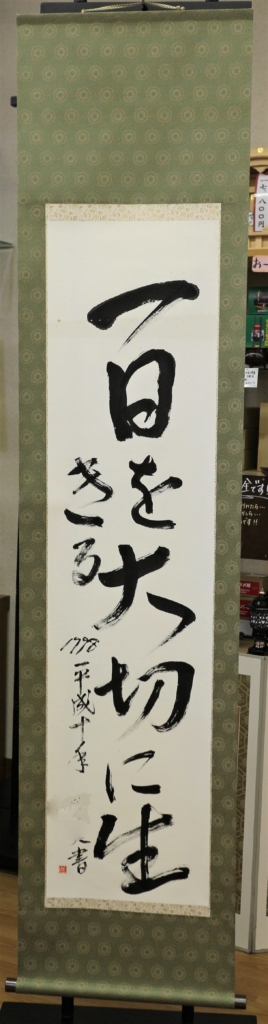 一日を大切に生
きる
1998
平成十年
書
八〇〇円